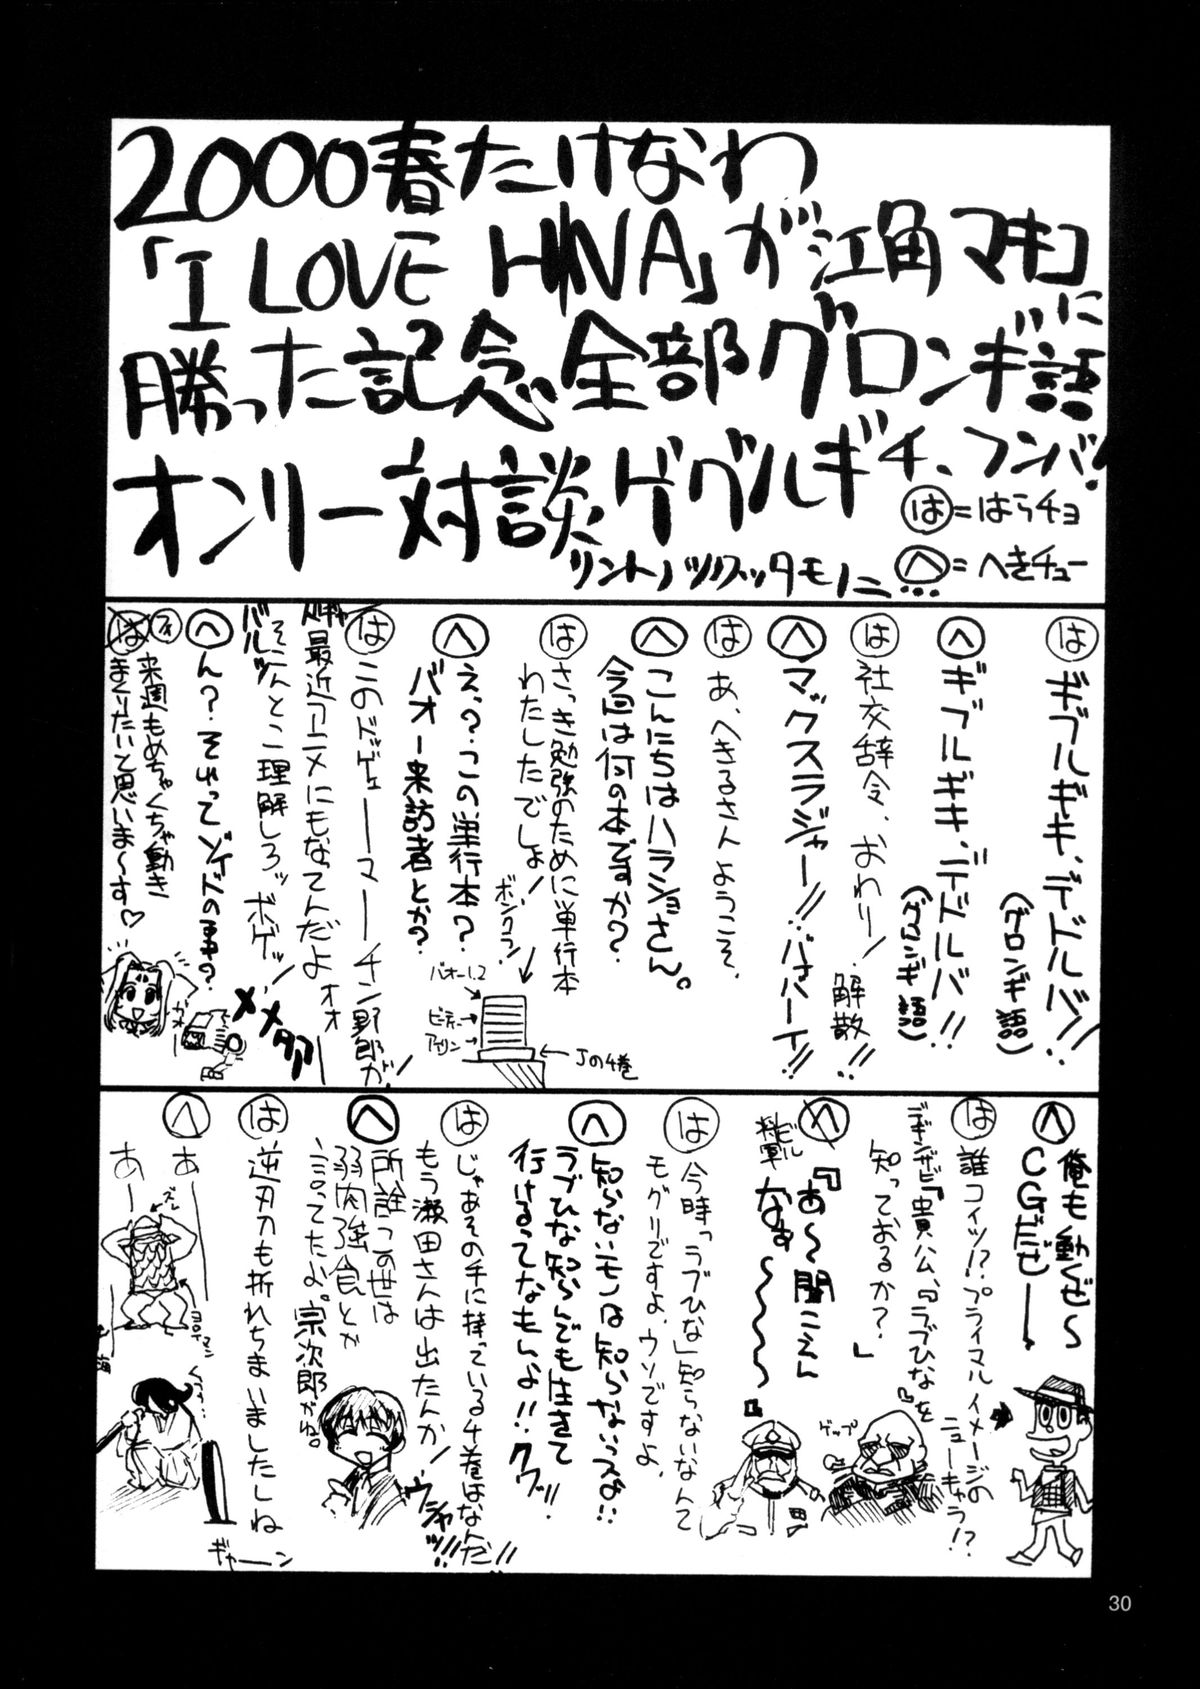 2000春たけなわ
「I LOVE HINA」が江角マキコに
勝った記念全部グロンギ語
オンリー対談ゲゲルギチ、フンバ!
は=はらチョ
へ=へきチュー
は ギブルギキ、デドルバ!!
(グロンギ語)
へ ギブルギキ、デドルバ!!
(グロンギ語)
は 社交辞令、おわり!
解散!!
へ マグクスラジャー!!バイバーイ!!
は あ、へきるさんようこそ、
へ こんにちはハラショさん。
今回は何の本ですか?
は さっき勉強のために単行本
わたしたでしょ!
ボンクラ!
へ え、?この単行本?
バオー来訪者とか?
バオー1.2
ビーティー
アイリン
Jの4巻
は このドゲェーーマーーチン野郎が!
最近アニメにもなてんだよオオ
そこんとこ理解しろッボゲッ!
バルッ
メメタァー
へ ん?それってゾイドの事?
は
来週もめちゃくちゃ動き
まくりたいと思いま〜す♡
へ 俺も動くぜ〜
CGだぜー
は 誰コイツ!?プライマルイメージの
ニューキャラ!?
デギンザビ『貴公、『ラブひな』を
知っておるか?』
ゲップ
へ『あ〜聞こえん
なぁ〜〜〜〜』
ビル
将軍
は 今時「ラブひな」知らないなんて
モグリですよ、ウソですよ、
へ 知らないモノは知らないっスよ!!
ラブひな知らんでも生きて
行けるってなもんよ!!クワッ!!
は じゃあその手に持っている4巻はなんだ!!
もう瀬田さんは出たんか!ウシャッ!!!
へ 所詮この世は
弱肉強食とか
言ってたよ。宗次郎がね。
は 逆刃刀も折れちまいましたしね
ギャーン
へ あー
あー
ズルッ
30